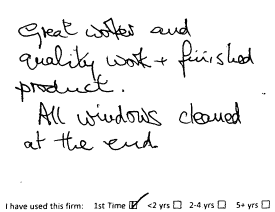 Great worker and
quality work + finished
product.
All windows cleaned
at the end.
I have used this firm: 1st Time ☑ <2 yrs ☐ 2-4 yrs ☐ 5+ yrs ☐